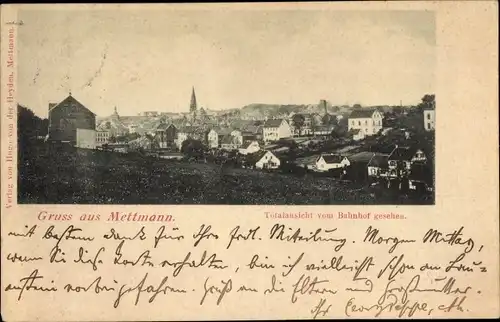 Verlag von Hugo von der Heyden, Mettmann.
Gruss aus Mettmann.
Totalansicht vom Bahnhof gesehen.
mit bestem Dank für Ihre frdl. Mitteilung. Morgen Mittag,
wenn Sie diese Karte erhalten, bin ich vielleicht schon an
vorbei gefahren. Gruß an die Eltern und Großmutter.
Ihr Georg